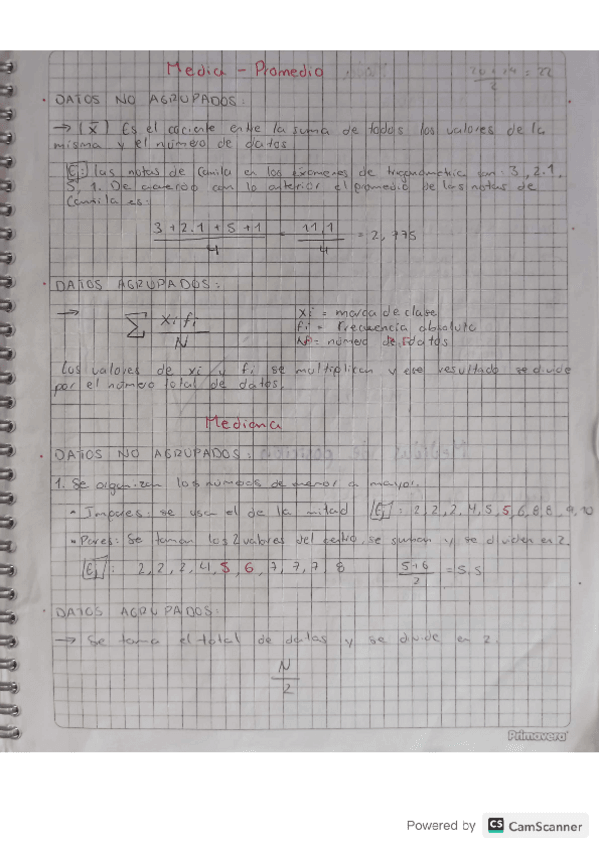 Media - Promedio
20+24 = 22
2
• DATOS NO AGRUPADOS:
→ (X̄) Es el cociente entre la suma de todos los valores de la
misma y el número de datos
Ej: las notas de Camila en los exámenes de trigonometria son: 3, 2.1,
5, 1. De acuerdo con lo anterior el promedio de las notas de
Camila es:
3 + 2.1 + 5 + 1 = 11,1 = 2,775
4 4
• DATOS AGRUPADOS:
→ Σ xi fi
N
xi = marca de clase
fi = frecuencia absoluta
N = número de datos
Los valores de xi y fi se multiplican y ese resultado se divide
por el número total de datos.
Mediana
• DATOS NO AGRUPADOS:
1. Se organizan los números de menor a mayor.
• Impares: se usa el de la mitad Ej: 2, 2, 2, 4, 5, 5, 6, 8, 8, 9, 10
• Pares: Se toman los 2 valores del centro, se suman y se dividen en 2.
Ej: 2, 2, 2, 4, 5, 6, 7, 7, 7, 8 5+6 = 5.5
2
• DATOS AGRUPADOS:
→ Se toma el total de datos y se divide en 2.
N
2
Primavera
Powered by CS CamScanner